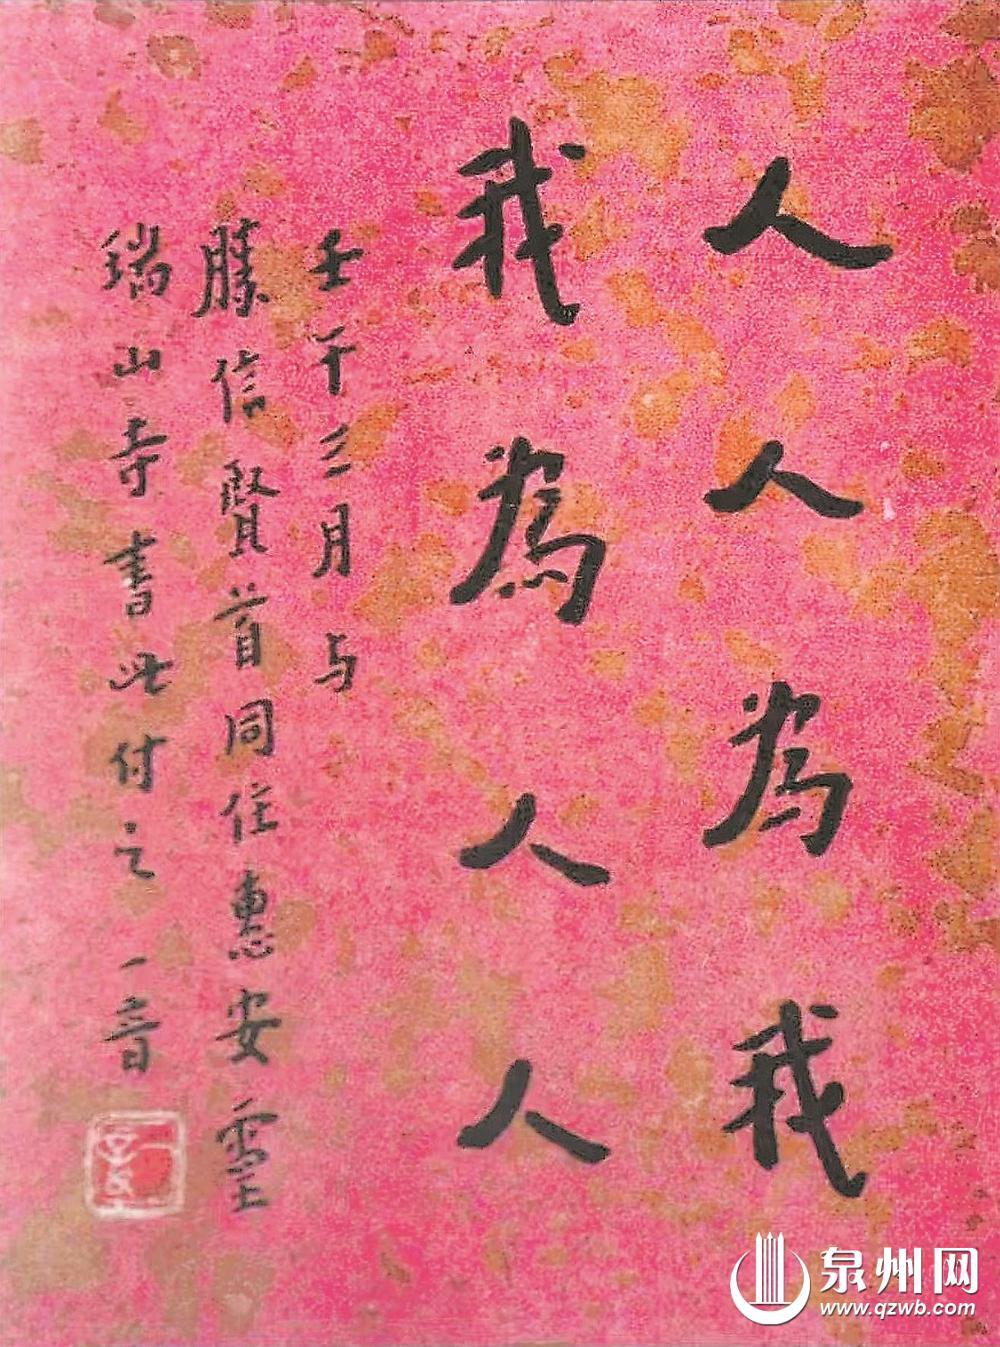 人人為我
我為人人
壬午三月与
勝信賢首同住惠安靈
瑞山寺書此付之 一音
泉州网
www.qzwb.com